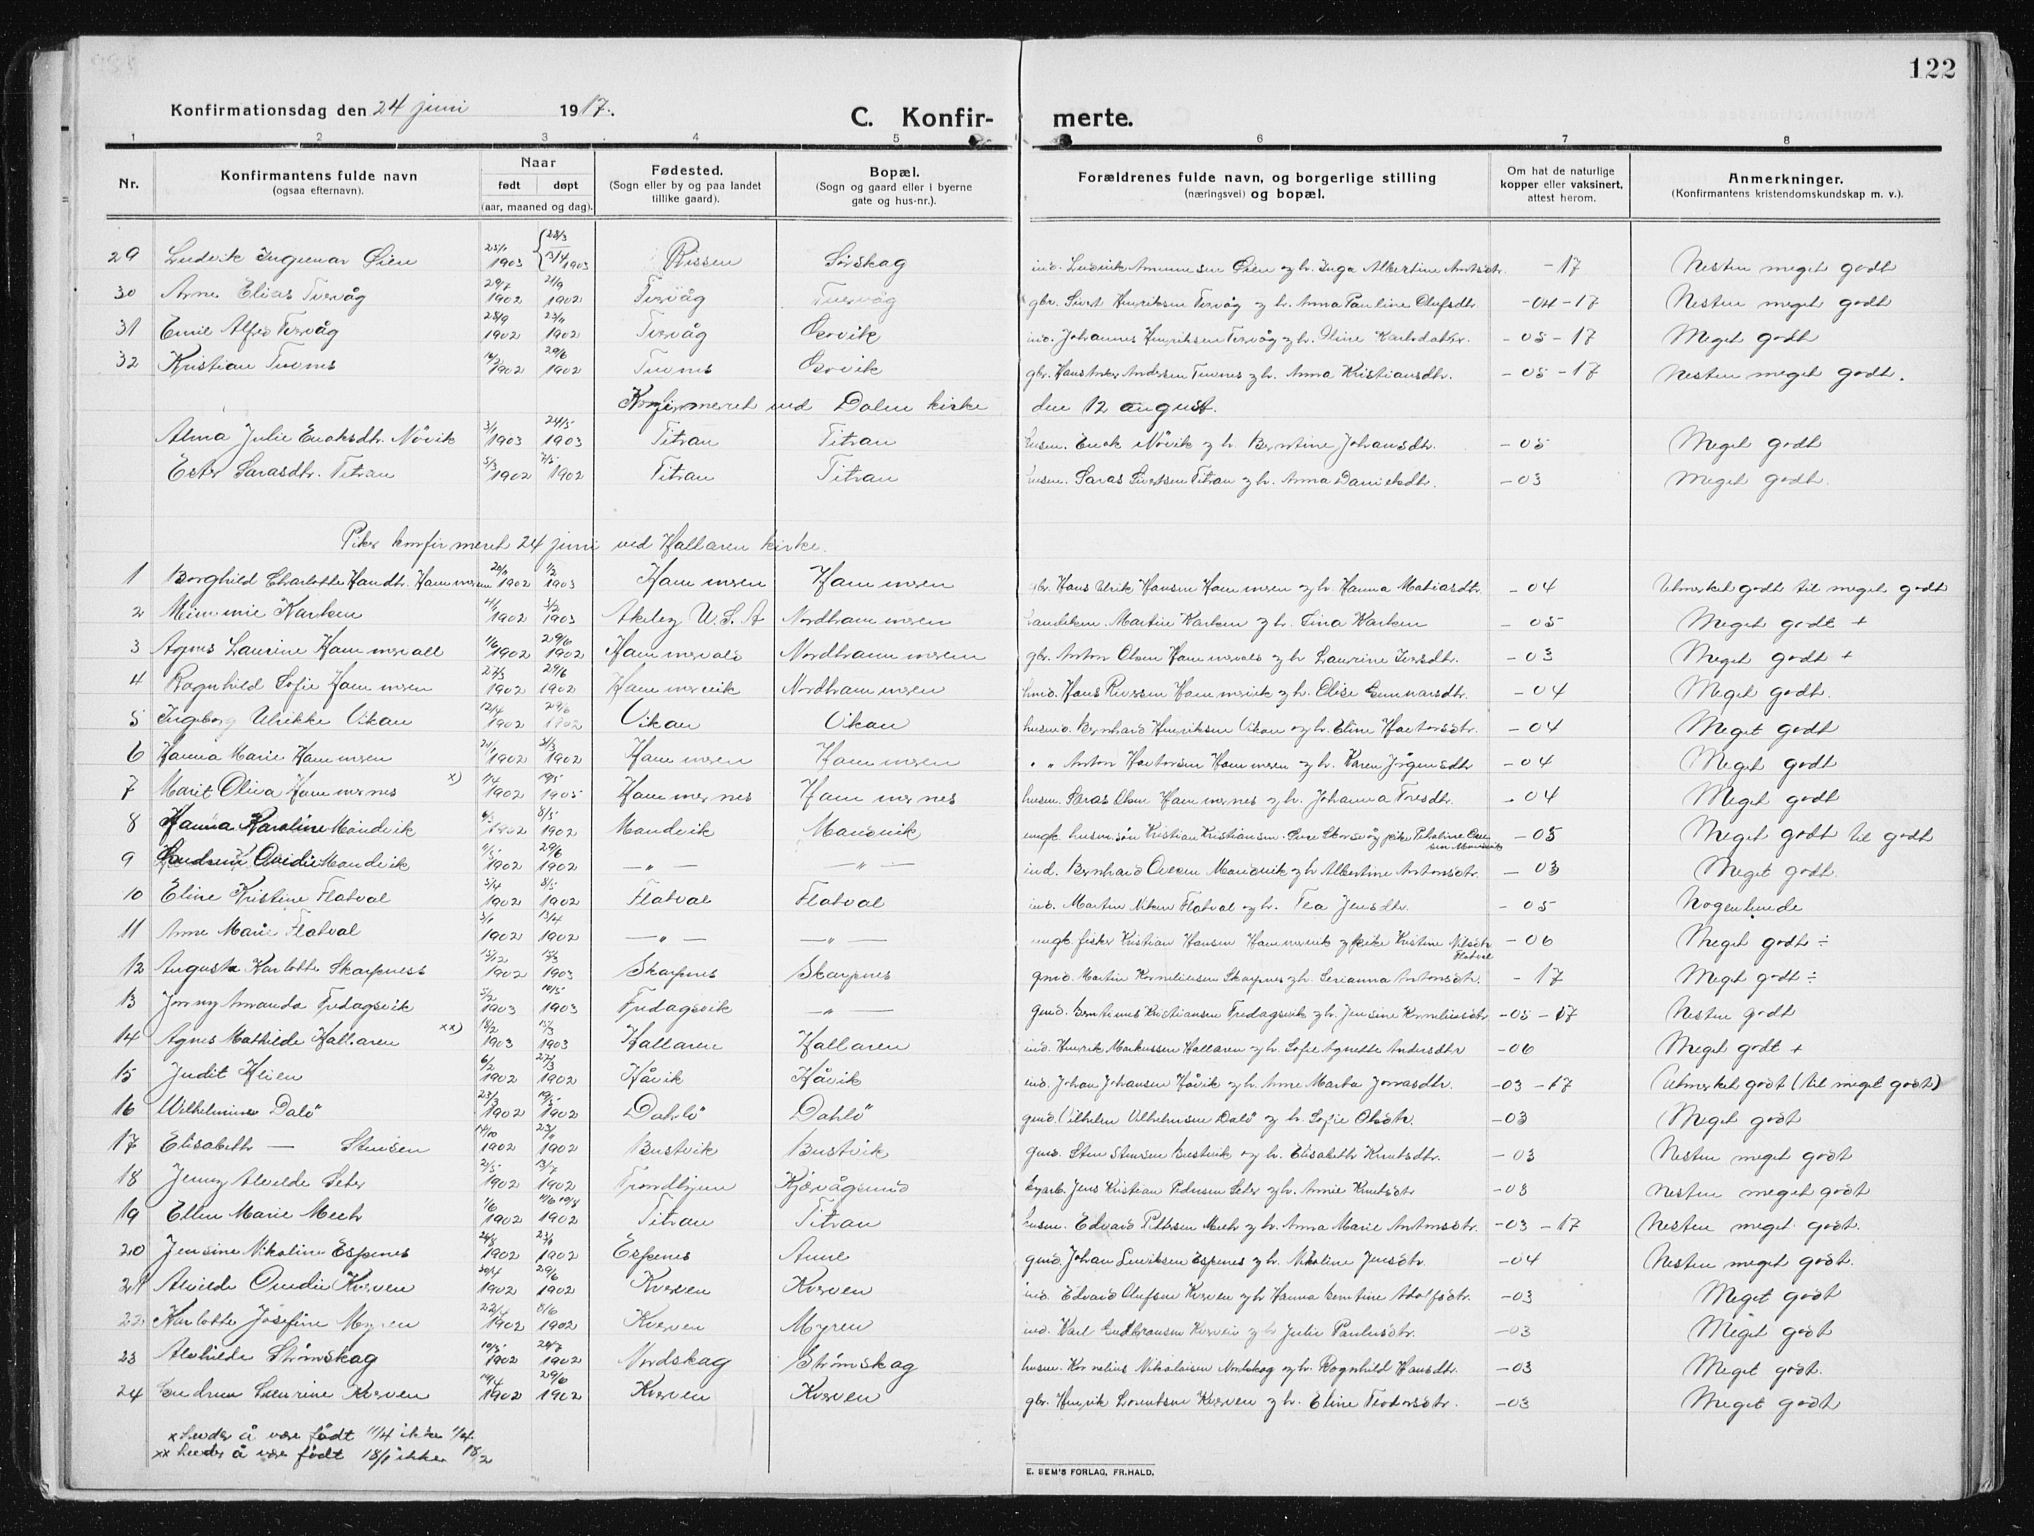 122
Konfirmationsdag den 24 juni 1917. C. Konfir- merte.
1 2 3 4 5 6 7 8
Nr. Konfirmantens fulde navn (ogsaa efternavn). Naar født døpt (aar, maaned og dag). Fødested. (Sogn eller by og paa landet tillike gaard). Bopæl. (Sogn og gaard eller i byerne gate og hus-nr.). Forældrenes fulde navn, og borgerlige stilling (næringsvei) og bopæl. Om hat de naturlige kopper eller vaksinert, attest herom. Anmerkninger. (Konfirmantens kristendomskundskap m. v.).
29 Ludvik Ingemar Øien 1903 1903 Rissen Sørskag ind. Ludvik Øien g h. Inga Albertine -17 Nesten meget godt
30 Arne Elias Tervåg 29/7 1902 21/9 1902 Tervåg Tervåg gbr. Sivert Henriksen Tervåg g h. Anna Pauline Olufsdtr. -04-17 Nesten meget godt
31 Emil Alfred Tervåg 28/9 1902 23/11 1902 Tervåg Osvik ind. Johannes Henriksen Tervåg g h. Oline -05-17 Meget godt
32 Kristian Tuvnes 1902 29/6 1902 Tuvnes Osvik gbr. Andersen Tuvnes g h. Anna Kristiansdtr. -05-17 Nesten meget godt.
Konfirmeret ved Dolm kirke den 12 august.
Alma Julie Enoksdtr. Növik 3/1 1903 24/5 1903 Titran Titran husm. Enok Növik g h. Berntine Johansdtr. -05 Meget godt
Ester Sarasdtr. Titran 5/3 1902 7/5 1902 Titran Titran husm. Saras Sivertsen Titran g h. Anna Danielsdtr. -03 Meget godt.
Piker konfirmeret 24 juni ved Hallaren kirke.
1 Borghild Charlotte Hansdtr. Hammeren 1902 1/2 1903 Hammeren Hammeren gbr. Hans Ulrik Hansen Hammeren g h. Hanna Matiasdtr. -04 Utmerket godt til meget godt
2 Mimmie Karken 1902 1903 Akeley U.S.A Nordhammeren Martin Karken g h. Tina Karken -05 Meget godt +
3 Agnes Laurine Hammervall 1/6 1902 29/6 1902 Hammervall Nordhammeren gbr. Anton Olsen Hammervold g h Laurine Iversdtr. -03 Meget godt +
4 Ragnhild Sofie Hammeren 27/3 1902 29/6 1902 Hammervik Nordhammeren Hans Hammervik g h. Elise Gunnarsdtr. -04 Meget godt.
5 Ingeborg Ulrikke Vikan 12/4 1902 29/6 1902 Vikan Vikan husmd. Bernhard Henriksen Vikan og h. Eline Hartonsdtr. -04 Meget godt
6 Hanna Marie Hammeren 1902 31/3 1902 Hammeren Hammeren " " Anton Hartonsen Hammeren g h. Karen Jörgensdtr -04 Meget godt
7 Marit Oliva Hammernes x) 1/4 1902 19/5 1905 Hammernes Hammernes husm. Saras Olsen Hammernes g h. Johanna -04 Meget godt
8 Hanna Karoline Mandvik 1902 8/5 1902 Mandvik Mandvik ungk. husm.søn Kristian Kristiansen -05 Meget godt til godt
9 Ovidie Mandvik 1902 29/6 1902 — " — — " — ind. Bernhard Mandvik g h Albertine Antonsdtr. -03 Meget godt.
10 Eline Kristine Flatval 5/4 1902 8/5 1902 Flatval Flatval ind. Martin Flatval og h. Tea Jensdtr. -05 Nogenlunde
11 Anne Marie Flatval 3/1 1902 13/4 1902 — " — — " — ungk. fisker Kristian Hansen Hammervik g pike Kristine Nilsdtr Flatval -06 Meget godt ÷
12 Augusta Karlotte Skarpness 13/12 1902 1903 Skarpnes Skarpnes gmd. Martin Kornelius­sen Skarpnes g h. Serianna Antonsdtr. -17 Meget godt ÷
13 Jonny Amanda Fredagsvik 5/2 1903 10/5 1903 Fredagsvik — " — gmd. Kristiansen Fredagsvik g h. Jensine Korneliusdtr -05-17 Nesten godt
14 Agnes Mathilde Hallaren xx) 18/2 1903 1903 Hallaren Hallaren ind. Henrik Markussen Hallaren g h. Sofie Agnette Andersdtr -06 Meget godt +
15 Judit Heien 6/2 1902 27/3 1902 Håvik Håvik ind. Johan Johansen Håvik g h. Anne Marta Jonasdtr. -03-17 Utmerket godt (til meget godt)
16 Wilhelmine Dalö 23/3 1902 1902 Dahlö Dahlö gmd Vilhelm Vilhelmsen Dalö g h. Sofie Olsdtr. -03 Meget godt
17 Elisabeth — Stensen 14/10 1902 23/11 1902 Bustvik Bustvik gmd. Sten Stensen Bustvik og h. Elisabeth Knutsdtr. -03 Nesten meget godt
18 Jenny Alvilde Seter 21/5 1902 13/7 1902 Trondhjem Kjervågsund byarb. Jens Kristian Pedersen Seter g h. Annie Knutsdtr -03 Nesten meget godt
19 Ellen Marie Meek 1/6 1902 1902 Titran Titran husm. Edvard Pettersen Meek g h. Anna Marie Antonsdtr. -03-17 Nesten meget godt.
20 Jensine Nikoline Espenes 1902 1902 Espenes Aune gmd. Johan Espenes g h. Nikoline Jensdtr. -04 Nesten meget godt.
21 Alvilde Ovidie Kverven 20/4 1902 29/6 1902 Kverven Kverven ind. Edvard Olufsen Kverven g h Hanna Berntine Adolfsdtr. -03 Meget godt
22 Karlotte Josefine Myren 22/4 1902 8/6 1902 Kverven Myren ind. Karl Gudbransen Kverven g h Julie Paulusdtr. -03 Meget godt
23 Alvhilde Strömskag 1902 1902 Nordskag Strömskag husm. Kornelius Nikolaisen Nordskag og h. Ragnhild Hansdtr. -03 Meget godt.
24 Gudrun Laurine Kverven 19/4 1902 29/6 1902 Kverven Kverven gbr. Henrik Lorentsen Kverven g h. Eline Teodorsdtr. -03 Meget godt
x være født 11/4 ikke 1/4.
xx å være født 18/1 ikke 18/2
E. SEM'S FORLAG, FR.HALD.